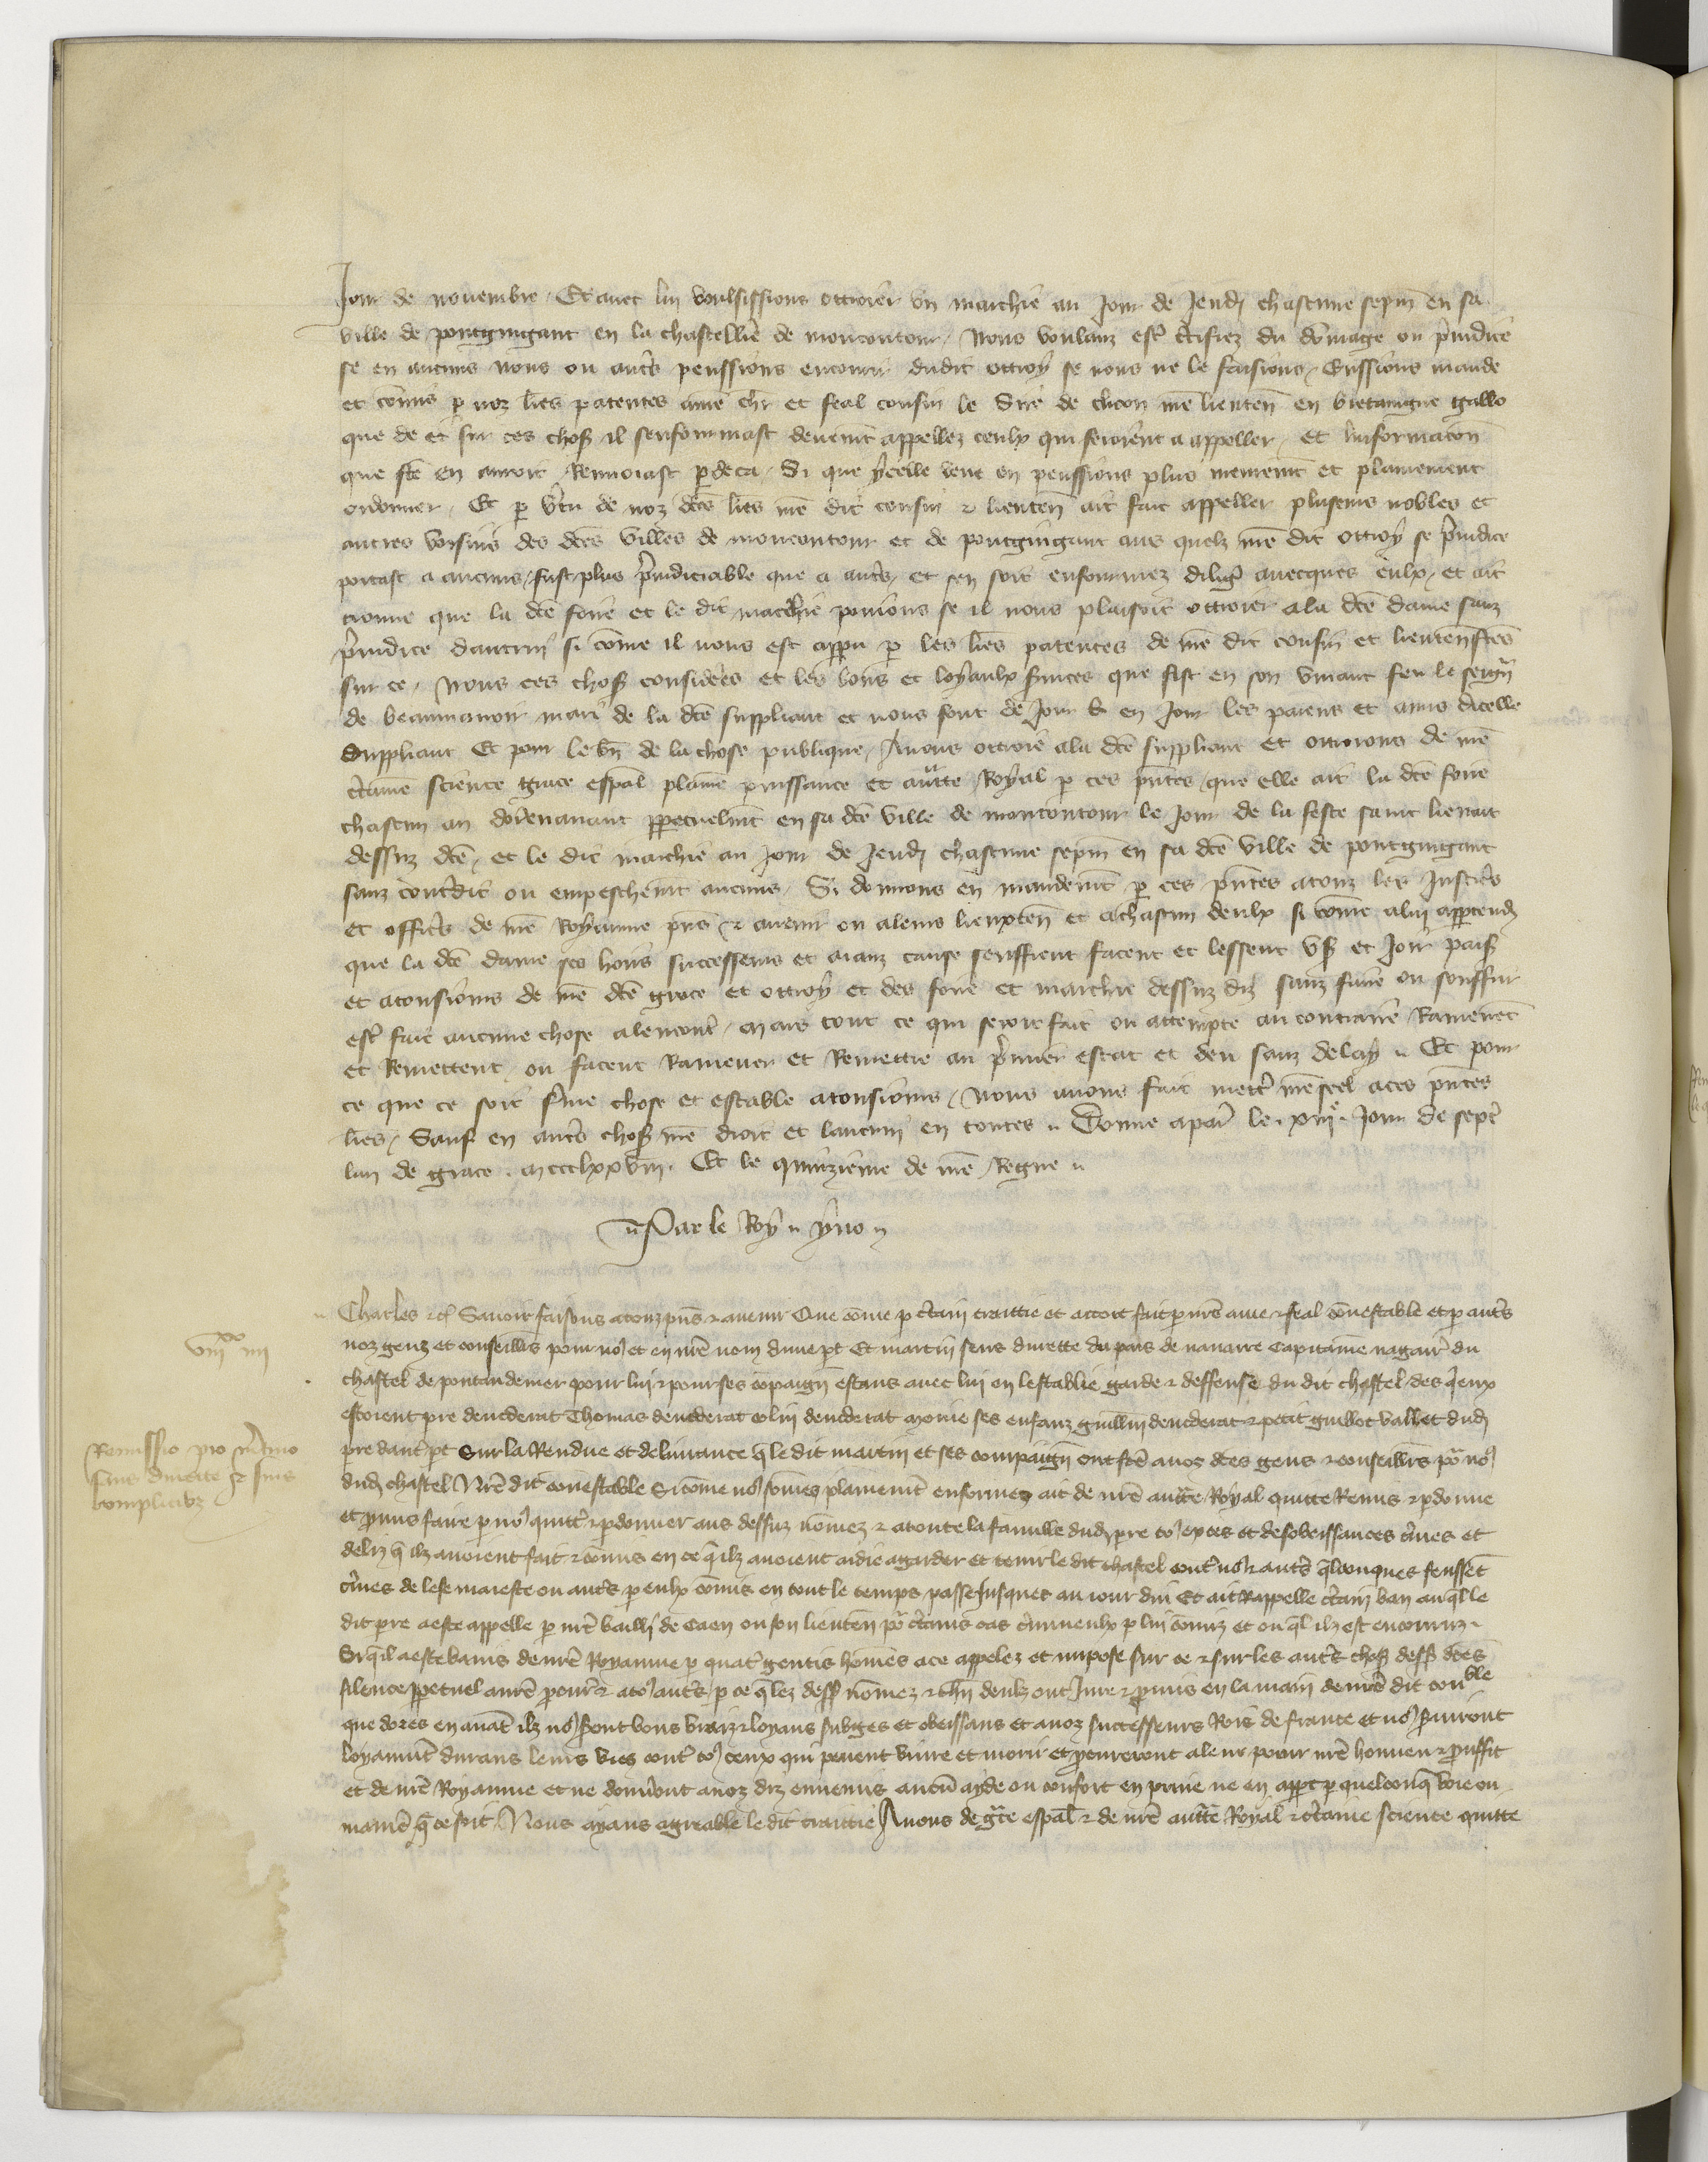 Jour de novembre. Et avec lui voulsissions ottroier un marchie au Jour de Jeudi chascune sepm en sa
ville de pontguigant en la chastellie de moncontour, Nous voulanz estre certifiez du domage ou preiudice
se en aucuns nous ou autres peussions encourir dudit ottroy se nous ne le faisions, Eussions mande
et comis p noz lres patentes ame chr et feal cousin le Sire de clicon nre lieuten en bretaingne gallo
que de et sur ces choses il senformast deuement appellez ceulx qui seroient a appeller, et linformacion
que fte en auroit Renvoiast p deca, Si que ycelle veue en peussions plus meurement et plainement
ordonner, Et p vertu de noz dces lres nre dit cousin & lieuten ait fait appeller pluseurs nobles et
autres voisins des dces villes de moncontour et de pontguigant aus quelz nre dit ottroy se preiudice
portast a aucuns, fust plus preiudiciable que a autres, et sen soit enformez dilig avecques eulx, et ait
trouve que la dce foire et le dit marchie povions se il nous plaisoit ottroier ala dce dame sanz
preiudice dautruy si come il nous est apparu p les lres patentes de nre dit cousin et lieuten ftes
sur ce, Nous ces choses considerees et les bons et loyaulx services que fist en son vivant feu le seign
de beaumanoir mari de la dce suppliant et nous font de Jour & en Jour les parens et amis dicelle
suppliant Et pour le bn de la chose publique, Avons ottroie ala dce suppliant et ottroions de nre
certaine science grace espal plaine puissance et autte Royal p ces pntes, que elle ait la dce foire
chascun an dorenavant ppetuelmt en sa dce ville de moncontour le Jour de la feste saint lienart
dessus dce, et le dit marchie au Jour de Jeudi chascune sepm en sa dce ville de pontguigant
sanz contredit ou empeschemt aucuns, Si donnons en mandemt p ces pntes a touz les Justic
et offic de nre Royaume pns & avenir ou a leurs lieuxten et a chascun deulx si come a lui appartendra
que la dce dame ses hoirs successeurs et aianz cause seuffrent facent et lessent user et Joir paisi
et a tousiours de nre dce grace et ottroy et des foire et marchie dessus diz sanz faire ou souffrir
estre fait aucune chose alencontre, mais tout ce qui seroit fait ou attempte au contraire Ramenent
et Remettent, ou facent Ramener et Remettre au premier estat et deu sanz delay. Et pour
ce que ce soit ferme chose et estable a tousiours, Nous avons fait mettre nre seel a ces pntes
lres, Sauf en autres choses nre droit et lautruy en toutes. Donne a paris le xiiij Jour de septembre
lan de grace. mccclxxviij. Et le quinzieme de nre Regne.
Par le Roy. yvo
Charles etc Savoir faisons a touz pns & avenir Que come p certain traittie et accort fait p nre ame & feal conestable et p autres
noz gens et conseilliers pour nous et en nre nom dune pt Et martin sens divette du pais de navarre Capitaine nagaires du
chastel de pontaudemer pour lui & pour ses compaign estans avec lui en lestablie garde & deffense du dit chastel des queux
estoient pre deuederat Thomas deuederat colin deuederat ses enfanz guillin deuederat & petit guillot vallet dud
pre dautre pt Sur la Rendue et delivrance que le dit martin et ses compaign ont fte a noz dces gens & conseilliers pour nous
dud chastel Nre dit conestable Si come nous somes plainemt enformez ait de nre autte Royal quitte Remis & pdonne
et promis faire p nous quitter & pdonner aus dessus nomez & a toute la famille dud pre tous exces et desobeissances crimes et
deliz que ilz avoient fait & comis en ce que ilz avoient aidie a garder et tenir le dit chastel contre nous & autres quelconques feussent
crimes de lese maieste ou autres p eulx comis en tout le temps passe Jusques au iour dui Et ait Rappelle certain ban au quel le
dit pre a este appelle p nre bailli de Caen ou son lieuten pour certains cas crimineulx p lui comiz et ou quel il est encouruz
Si quil a este banis de nre Royaume p quatre gentis homes a ce appelez et impose sur ce & sur les autres choses dess dces
silence ppetuel a nre procureur & a tous autres, p ce que les dess nomez & chn deulx ont Jure & promis en la main de nre dit conble
que dores en avant ilz nous seront bons vraiz & loyaus subges et obeissans et a noz successeurs Rois de france et nous serviront
loyaumt durans leurs vies contre tous ceux qui pevent vivre et morir et procureront a leur povoir nre honneur & prouffit
et de nre Royaume et ne donront a noz diz ennemis aucun ayde ou confort en prive ne en appert p quelconque voie ou
maniere que ce soit, Nous ayans agreable le dit traittie Avons de grace espal & de nre autte Royal & certaine science quitte
viijxx iiij
Remissio pro martino
sens divette & suis
complicibus